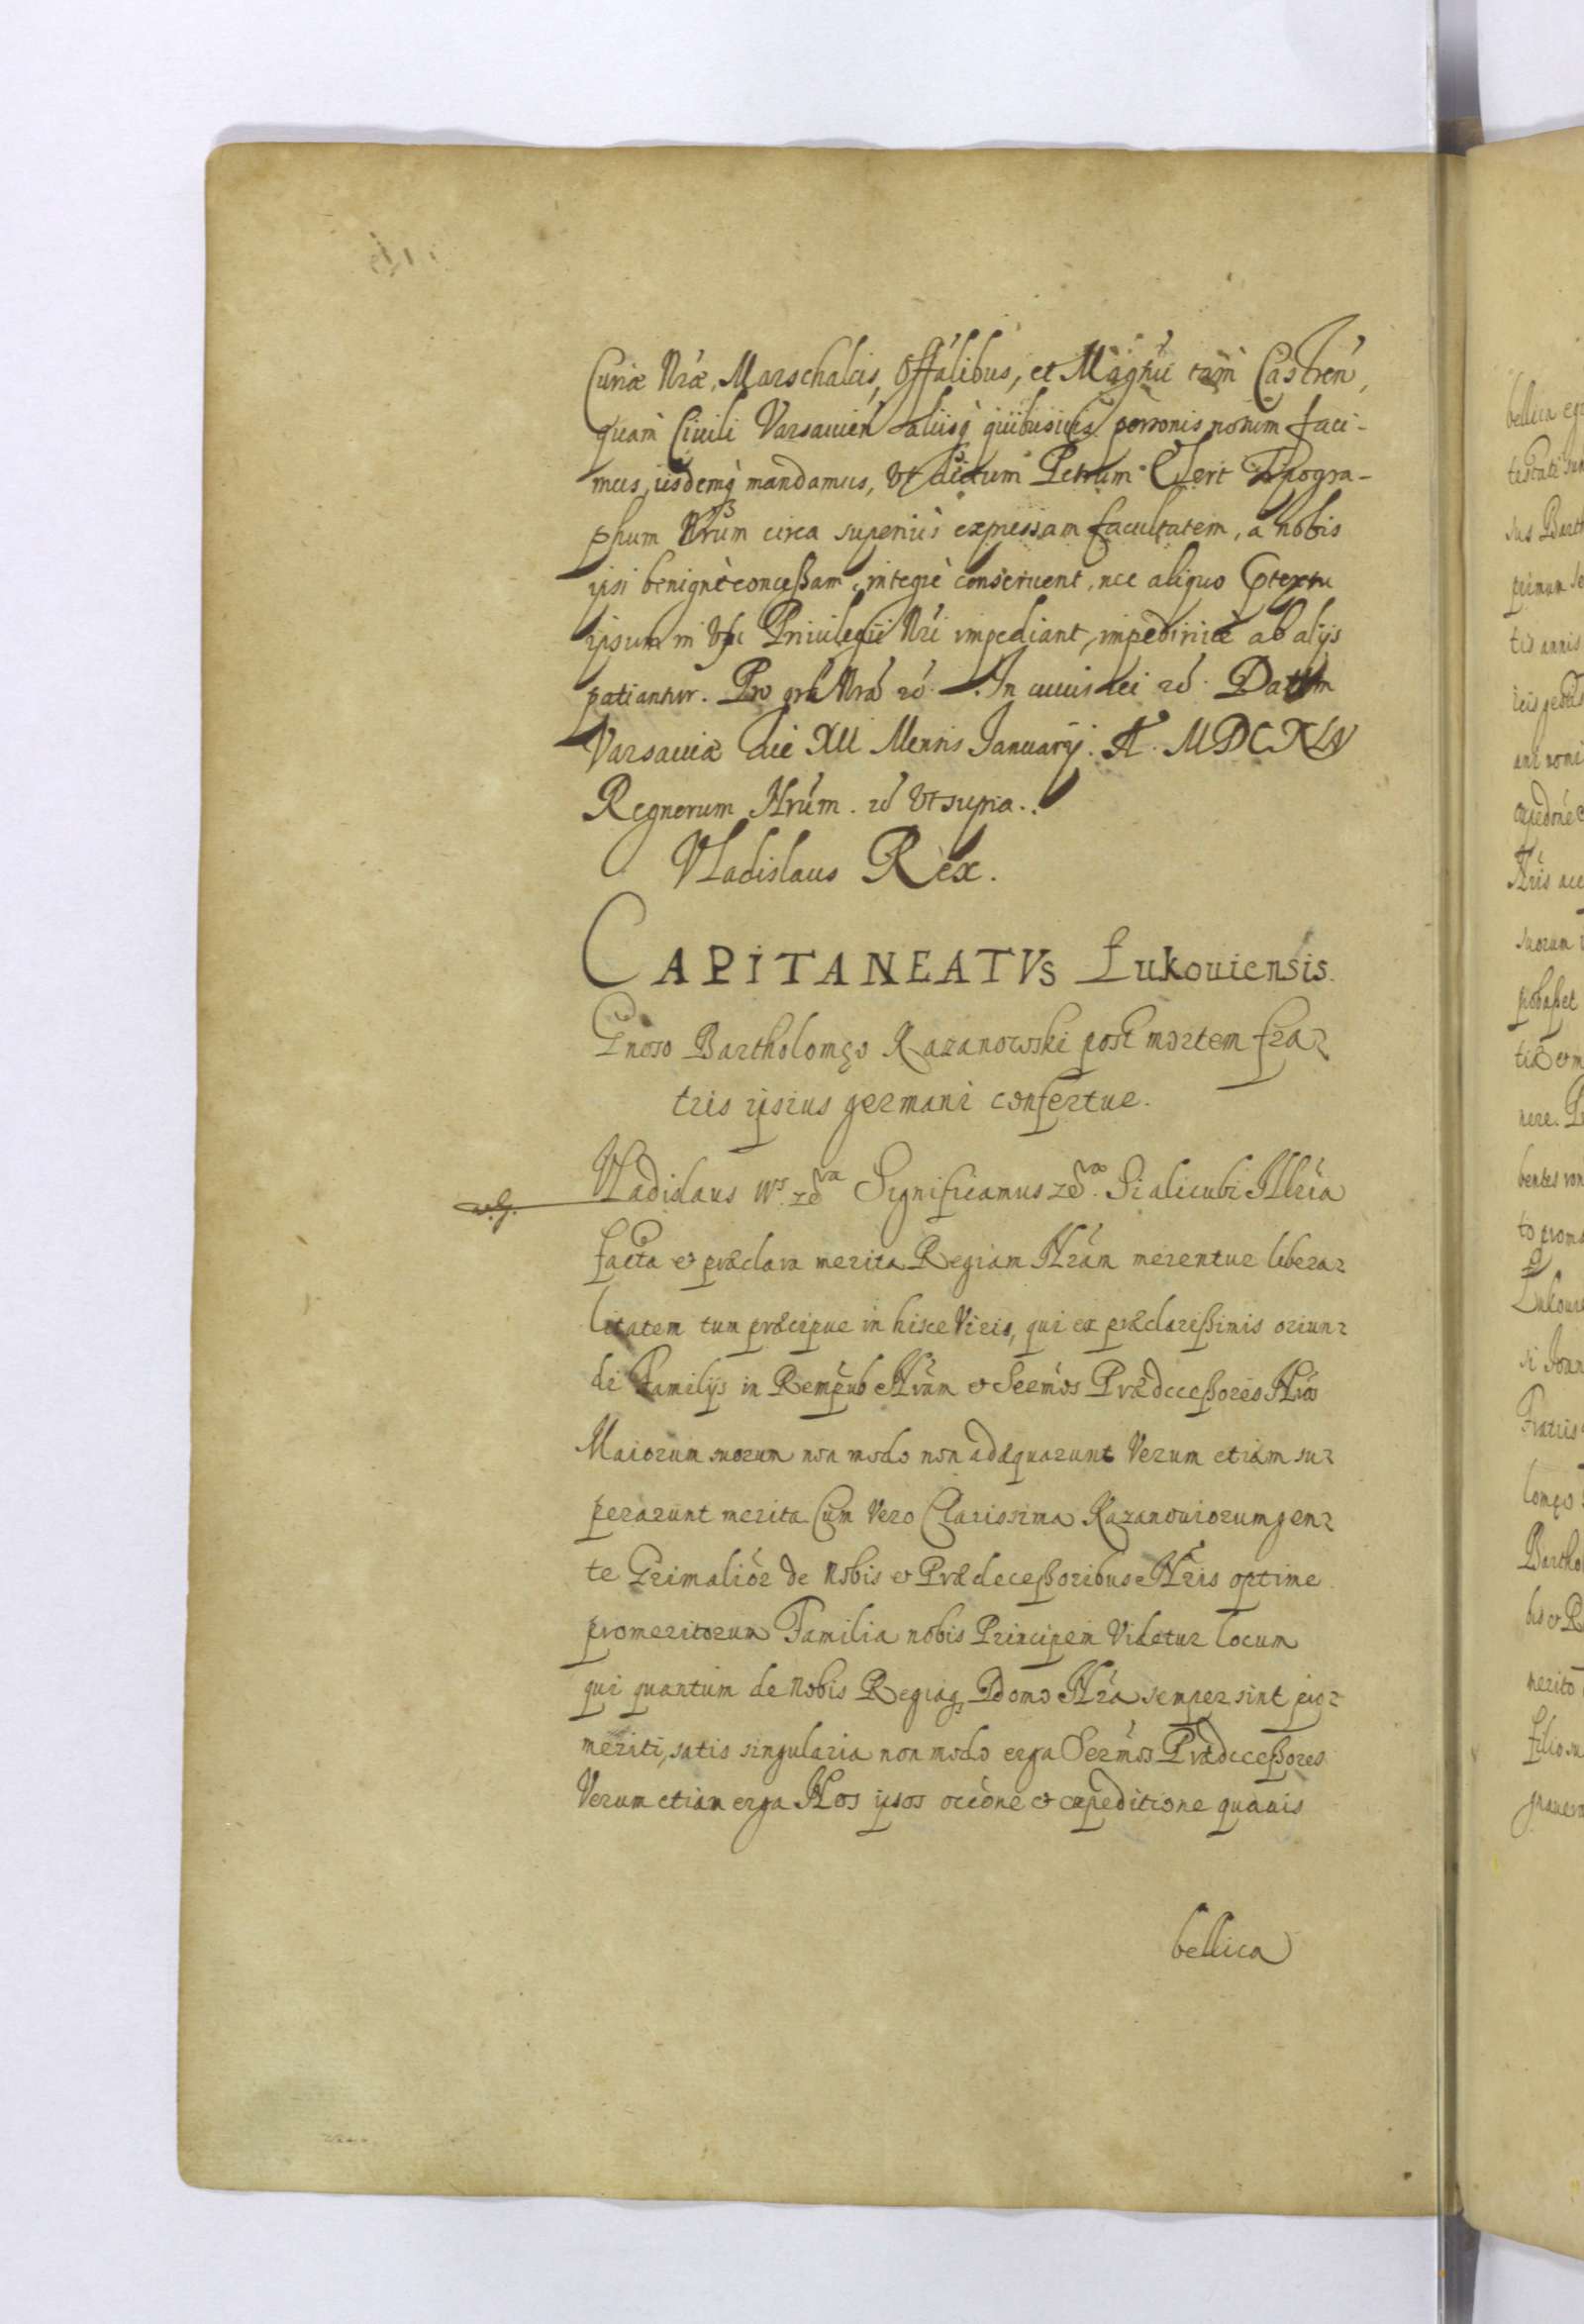 Curiæ Nræ, Marschalcis, Offálibus, et Magtui tam Castren,
quam Ciuili Varsauien aliisq quibusuis personis notum faci-
mus, iisdemq mandamus, Vt dictum Petrum Elert Tipogra-
phum Nrum circa superius expressam facultatem, a nobis
ipsi benignè concessam, integrè conseruent, nec aliquo Ptextu
ipsum in Vsu Priuilegii Nri impediant, impediriue ab aliis
patiantur. Pro gra Nra . In cuius rei . Datum
Varsauiæ die XII Mensis Januarij. A. MDCXLIV
Regnorum Nrum . Vt supra.
Vladislaus Rex.
CAPITANEATVS Łukouiensis.
Gnoso Bartholomęo Kazanowski post mortem fra
tris ipsius germani confertur.
Vladislaus Significamus . Si alicubi Illria
facta & præclara merita Regiam Nrám merentur libera
litatem tum præcipue in hisce Viris, qui ex præclarissimis oriun
di Familijs in Rempub Nrám & Sermos Prædecessores Nros
Maiorum suorum non modo non adæquarunt Verum etiam su
perarunt merita Cum Vero Clarissima Kazanouiorum gen
te Grimalior de Nobis & Prædecessoribus Nris optime
promeritorum Familia nobis Principem Videtur locum
qui quantum de Nobis Regiaq Domo Nra semper sint pro
meriti, satis singularia non modo erga Sermos Prædecessores
Verum etiam erga Nos ipsos occone & expeditione quauis
bellica